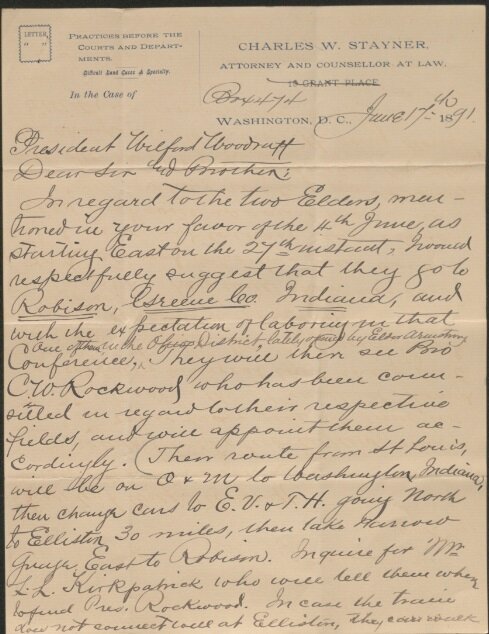 LETTER
" "
PRACTICES BEFORE THE
COURTS AND DEPART-
MENTS.
Difficult Land Cases a Specialty.
In the Case of
CHARLES W. STAYNER,
ATTORNEY AND COUNSELLOR AT LAW,
19 GRANT PLACE
Box 474
WASHINGTON, D. C., June 17th 1891.
President Wilford Woodruff
Dear Sir and Brother:
In regard to the two Elders, men-
tioned in your favor of the 4th June, as
starting East on the 27th instant, I would
respectfully suggest that they go to
Robison, Greene Co. Indiana, and
with the expectation of laboring in that
One of them in the Ohio District, lately opened by Elder Armstrong
Conference, They will there see Bro
C. W. Rockwood who has been coun-
silled in regard to their respective
fields, and will appoint them ac-
cordingly. Their route from St Louis,
will be on O & M to Washington, Indiana,
then change cars to E. V. & T. H. going North
to Elliston 30 miles, then take narrow
gauge East to Robison. Inquire for Mr
L. L. Kirkpatrick who will tell them where
to find Pres. Rockwood. In case the train
does not connect well at Elliston, they can walk